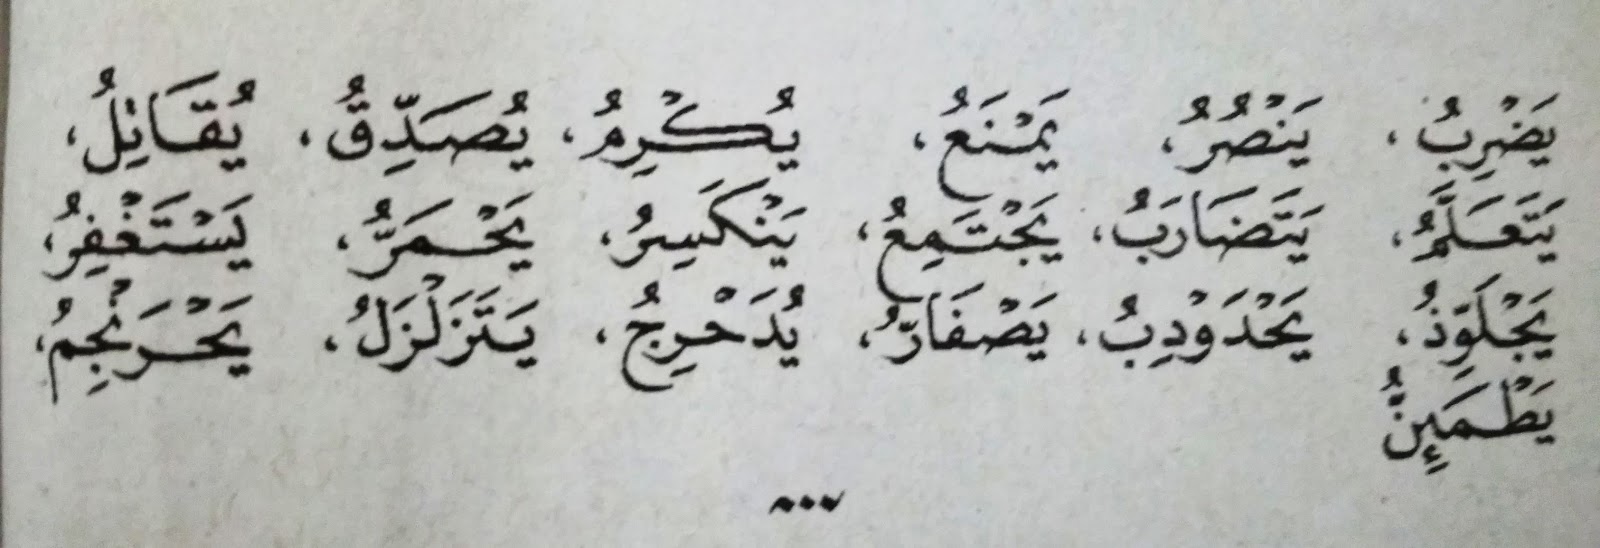 يَضْرِبُ، يَنْصُرُ، يَمْنَعُ، يُكْرِمُ، يُصَدِّقُ، يُقَاتِلُ،
يَتَعَلَّمُ، يَتَضَارَبُ، يَجْتَمِعُ، يَنْكَسِرُ، يَحْمَرُّ، يَسْتَغْفِرُ،
يَجْلَوِّذُ، يَحْدَوْدِبُ، يَصْفَارُّ، يُدَحْرِجُ، يَتَزَلْزَلُ، يَحْرَنْجِمُ،
يَطْمَئِنُّ